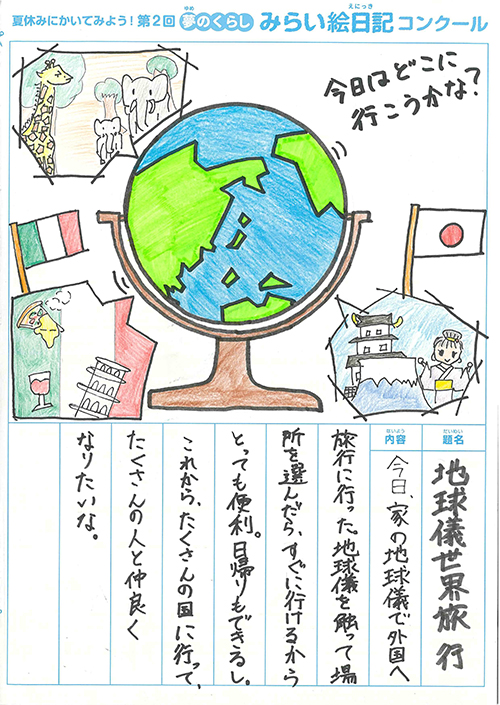 夏休みにかいてみよう！第2回 夢のくらし みらい絵日記コンクール
ゆめ
えにっき
今日はどこに
行こうかな？
だいめい
題名
地球儀世界旅行
ないよう
内容
今日、家の地球儀で外国へ
旅行に行った。地球儀を触って場
所を選んだら、すぐに行けるから
とっても便利。日帰りもできるし。
これから、たくさんの国に行って、
たくさんの人と仲良く
なりたいな。